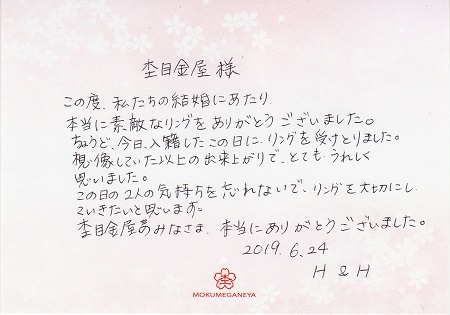 杢目金屋 様
この度、私たちの結婚にあたり
本当に素敵なリングをありがとうございました。
ちょうど、今日、入籍したこの日に、リングを受けとりました。
想像していた以上の出来上がりで、とても うれしく
思いました。
この日の2人の気持ちを忘れないで、リングを大切にし
ていきたいと思います。
杢目金屋のみなさま、本当にありがとうございました。
2019. 6. 24
H & H
MOKUMEGANEYA